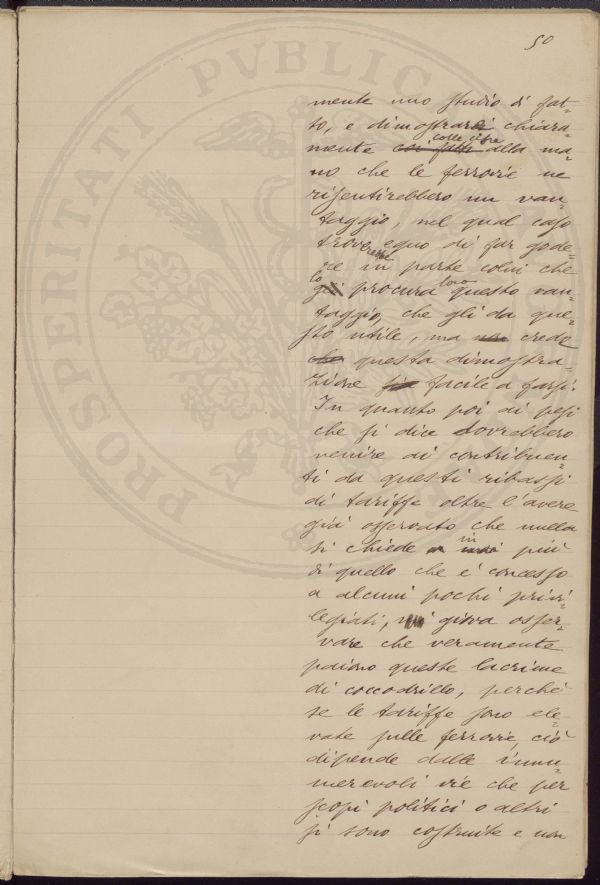 50
PROSPERITATI PVBLIC
mente uno studio di fat-
to, e dimostrarsi chiara-
colle cifre
mente coi fatti alla ma-
no che le ferrovie ne
risentirebbero un van-
taggio, nel qual caso
troverebbe equo di far gode-
re in parte colui che
lo loro
gli procura questo van-
taggio, che gli da que-
sto utile, ma non credo
che questa dimostra-
zione sia facile a farsi.
In quanto poi ai pesi
che si dice dovrebbero
venire ai contribuen-
ti da questi ribassi
di tariffe oltre l'avere
già osservato che nulla
in
si chiede più
di quello che è concesso
a alcuni pochi privi-
legiati, mi giova osser-
vare che veramente
paiono queste lacrime
di coccodrillo, perchè
se le tariffe sono ele-
vate sulle ferrovie, ciò
dipende dalle innu-
merevoli vie che per
scopi politici o altri
si sono costruite e non